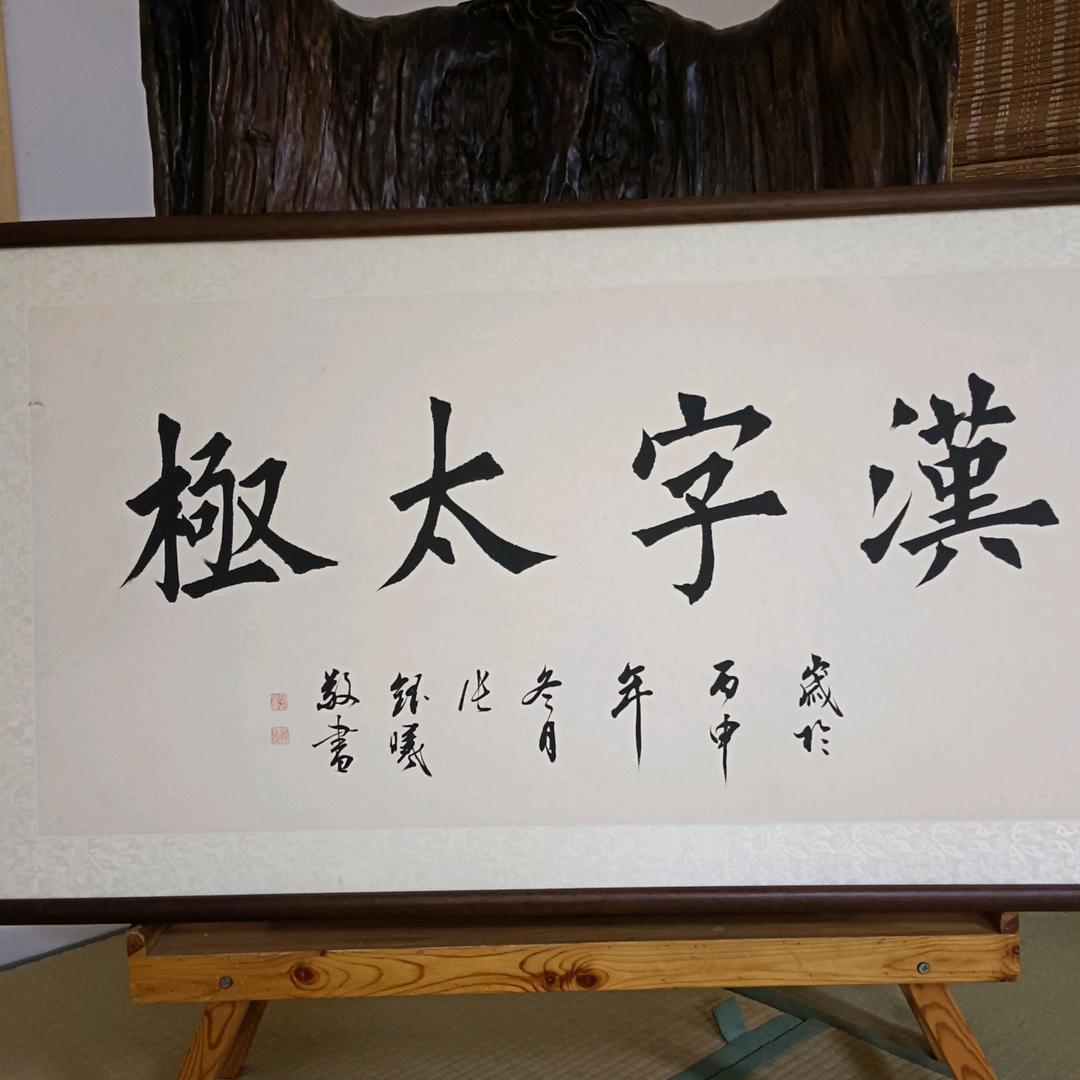 漢字太極
歲於
丙申
年
冬月
張
鈺曦
敬書